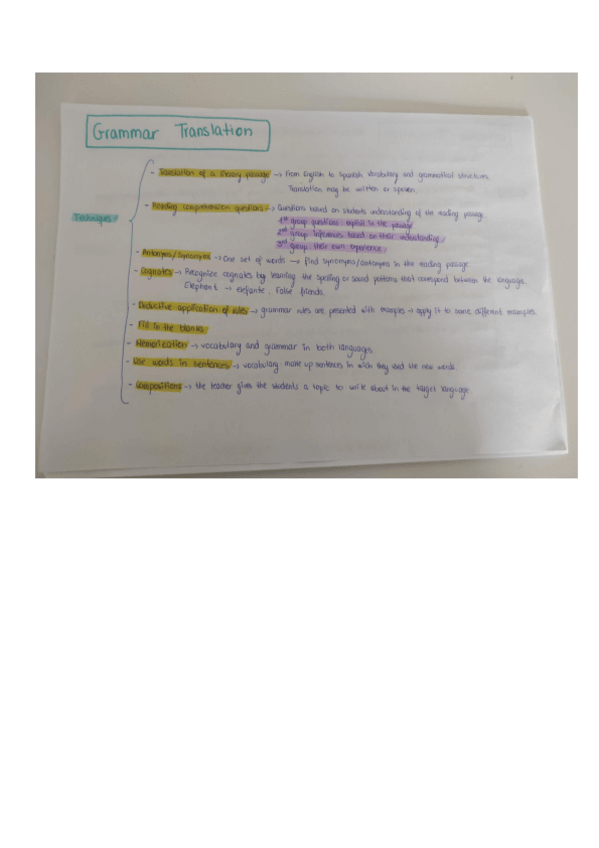 Grammar Translation
Techniques
- Translation of a literary passage → From English to Spanish. Vocabulary and grammatical structures.
Translation may be written or spoken.
- Reading comprehension questions → Questions based on students understanding of the reading passage.
1st group questions: explicit in the passage
2nd group: inferences based on their understanding.
3rd group: their own experience.
- Antonyms/synonyms → One set of words → find synonyms/antonyms in the reading passage
- Cognates → Recognize cognates by learning the spelling or sound patterns that correspond between the languages.
Elephant → elefante. False friends.
- Deductive application of rules → grammar rules are presented with examples → apply it to some different examples.
- Fill in the blanks
- Memorization → vocabulary and grammar in both languages.
- Use words in sentences → vocabulary: make up sentences in wich they used the new words.
- Compositions → the teacher gives the students a topic to write about in the target language